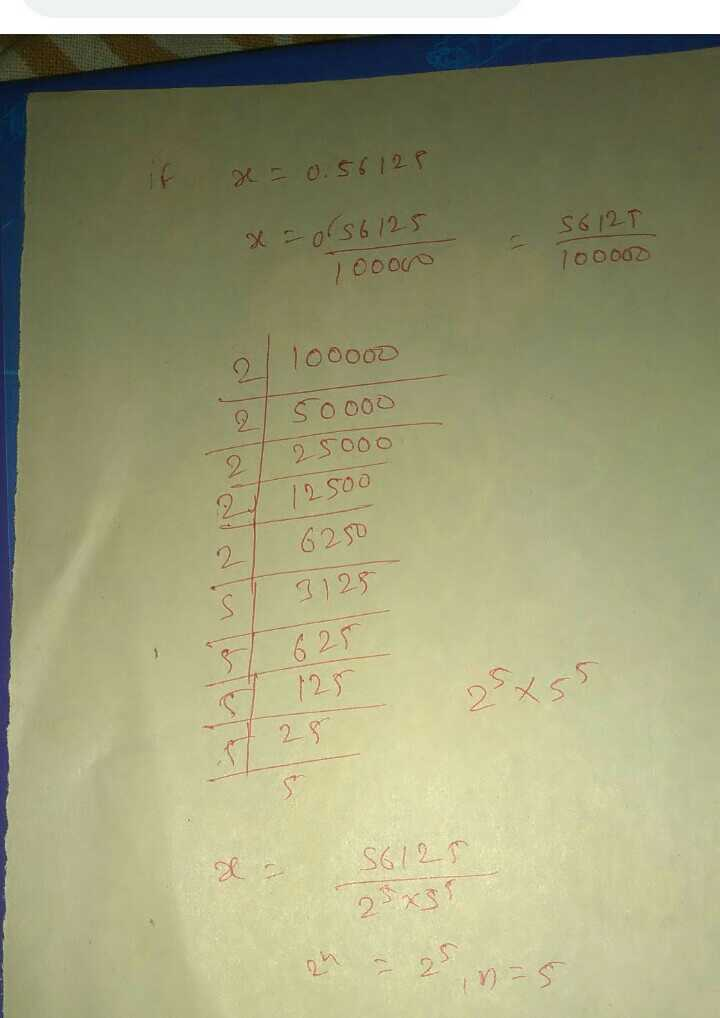 if x = 0.56125
x = 0.56125 / 100000 = 56125 / 100000
2 | 100000
2 | 50000
2 | 25000
2 | 12500
2 | 6250
5 | 3125
5 | 625
5 | 125
5 | 25
5
2^5 × 5^5
x = 56125 / 2^5 × 5^5
2^n = 2^5, n = 5